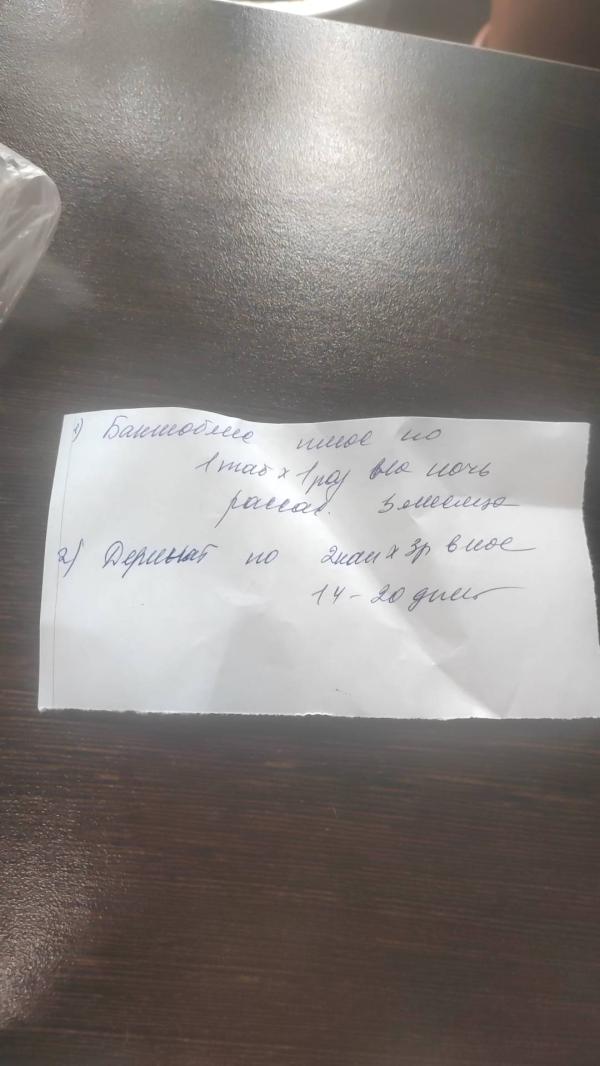 1) Бактоблис плюс по
1 таб х 1 раз на ночь
рассас. 3 месяца
2) Деринат по 2 кап х 3р в нос
14-20 дней